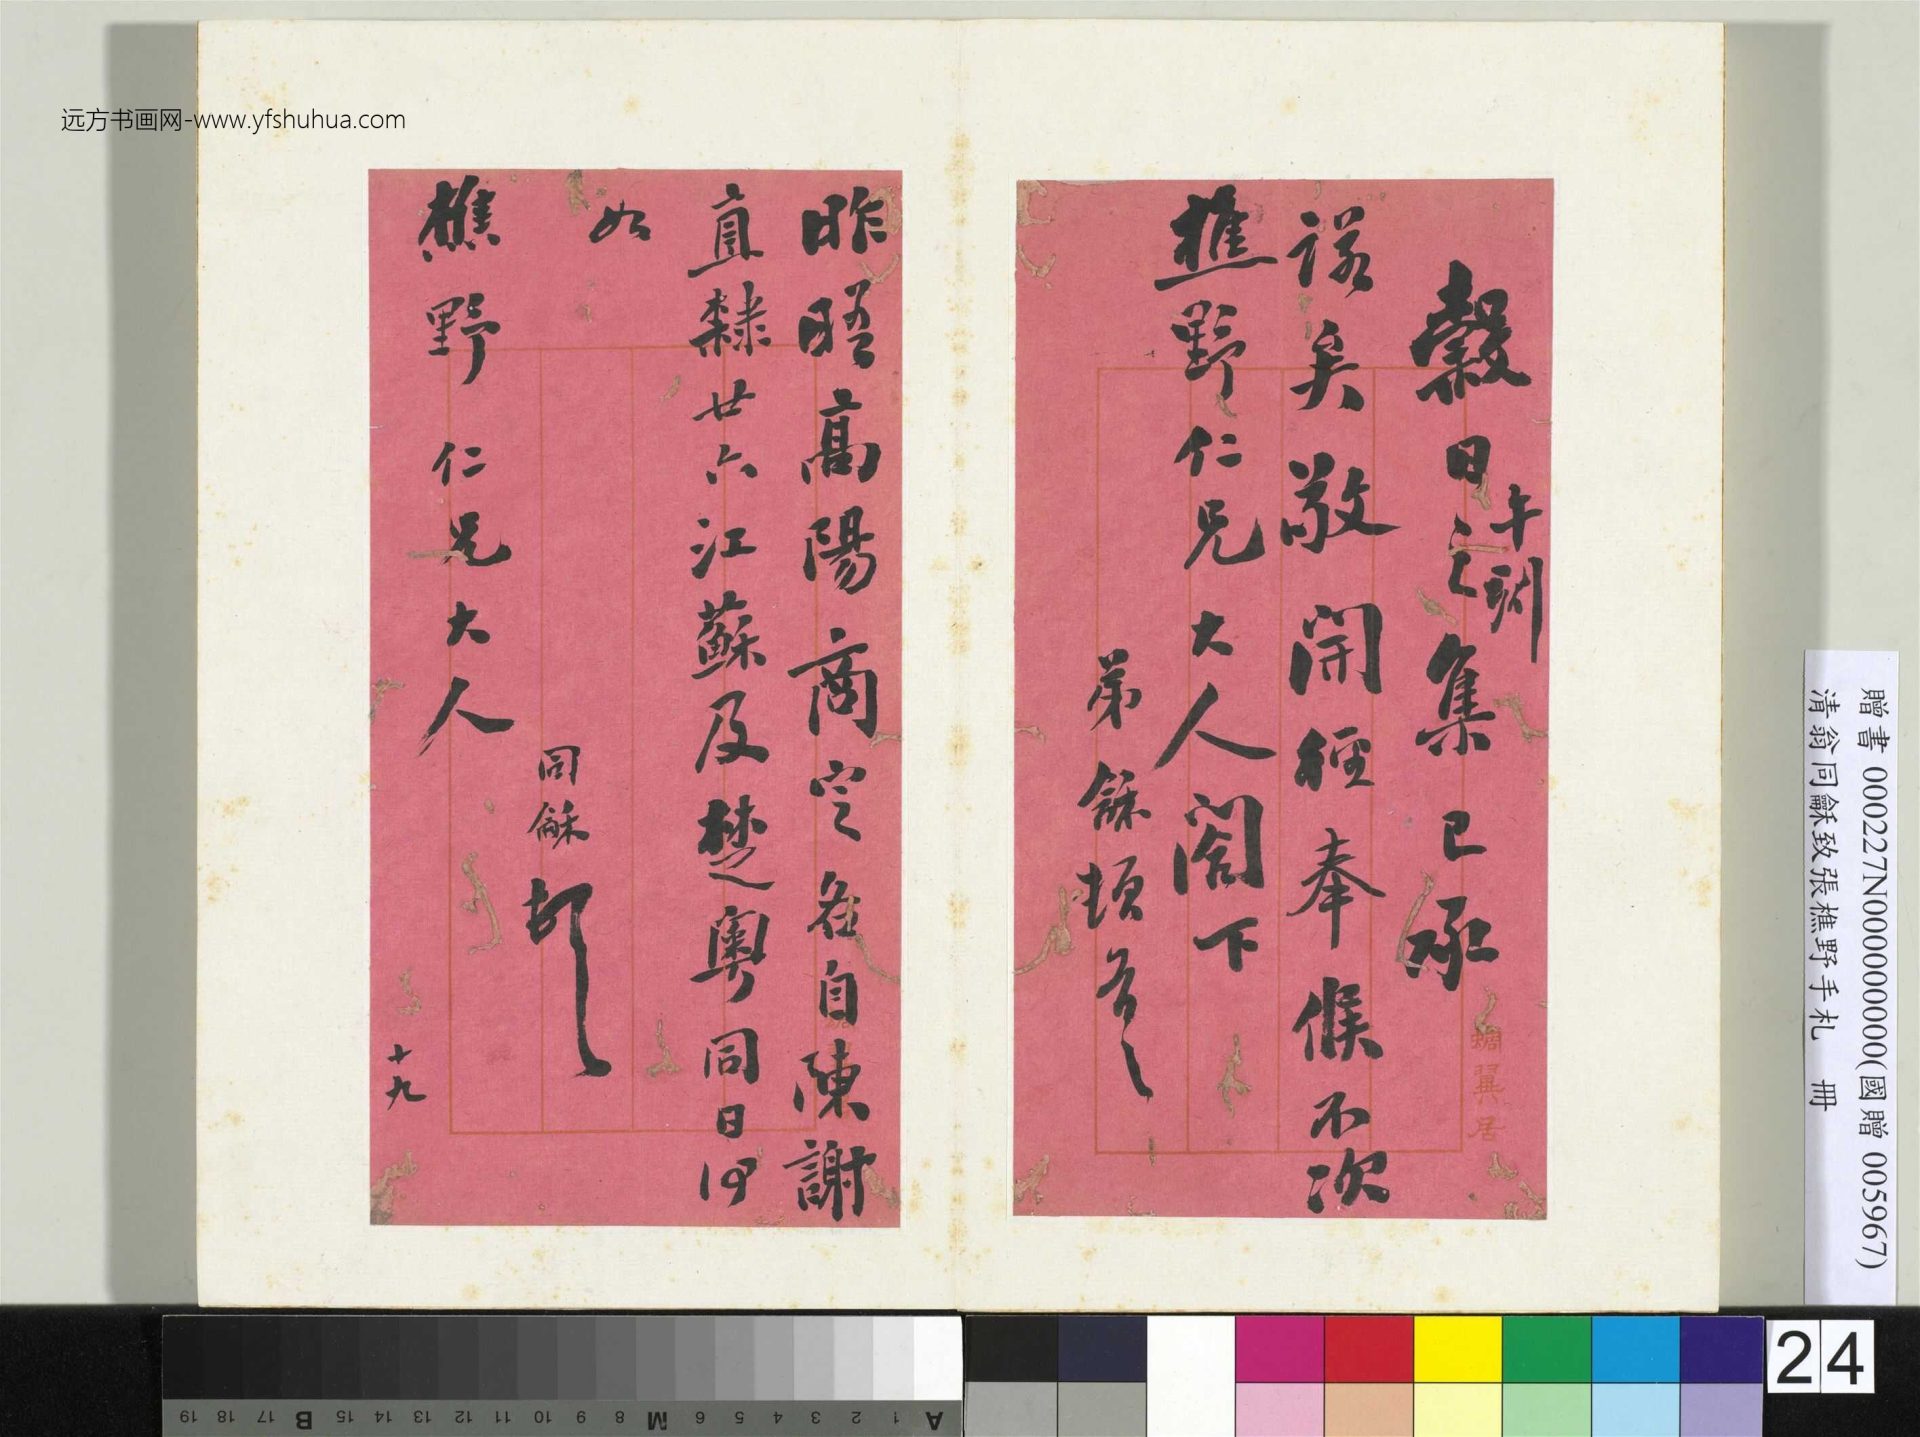 远方书画网-www.yfshuhua.com
穀日午刻之集已承
諾矣敬開徑奉候不次
樵野仁兄大人閣下
弟龢頓首
蜩翼居
昨晤高陽商定各自陳謝
直隸廿六江蘇及楚粵同日
如
樵野仁兄大人
同龢頓
十九
贈書 000227N000000000(國贈 005967)
清翁同龢致張樵野手札 冊
A 1 2 3 4 5 6 M 8 9 10 11 12 13 14 15 B 17 18 19
24